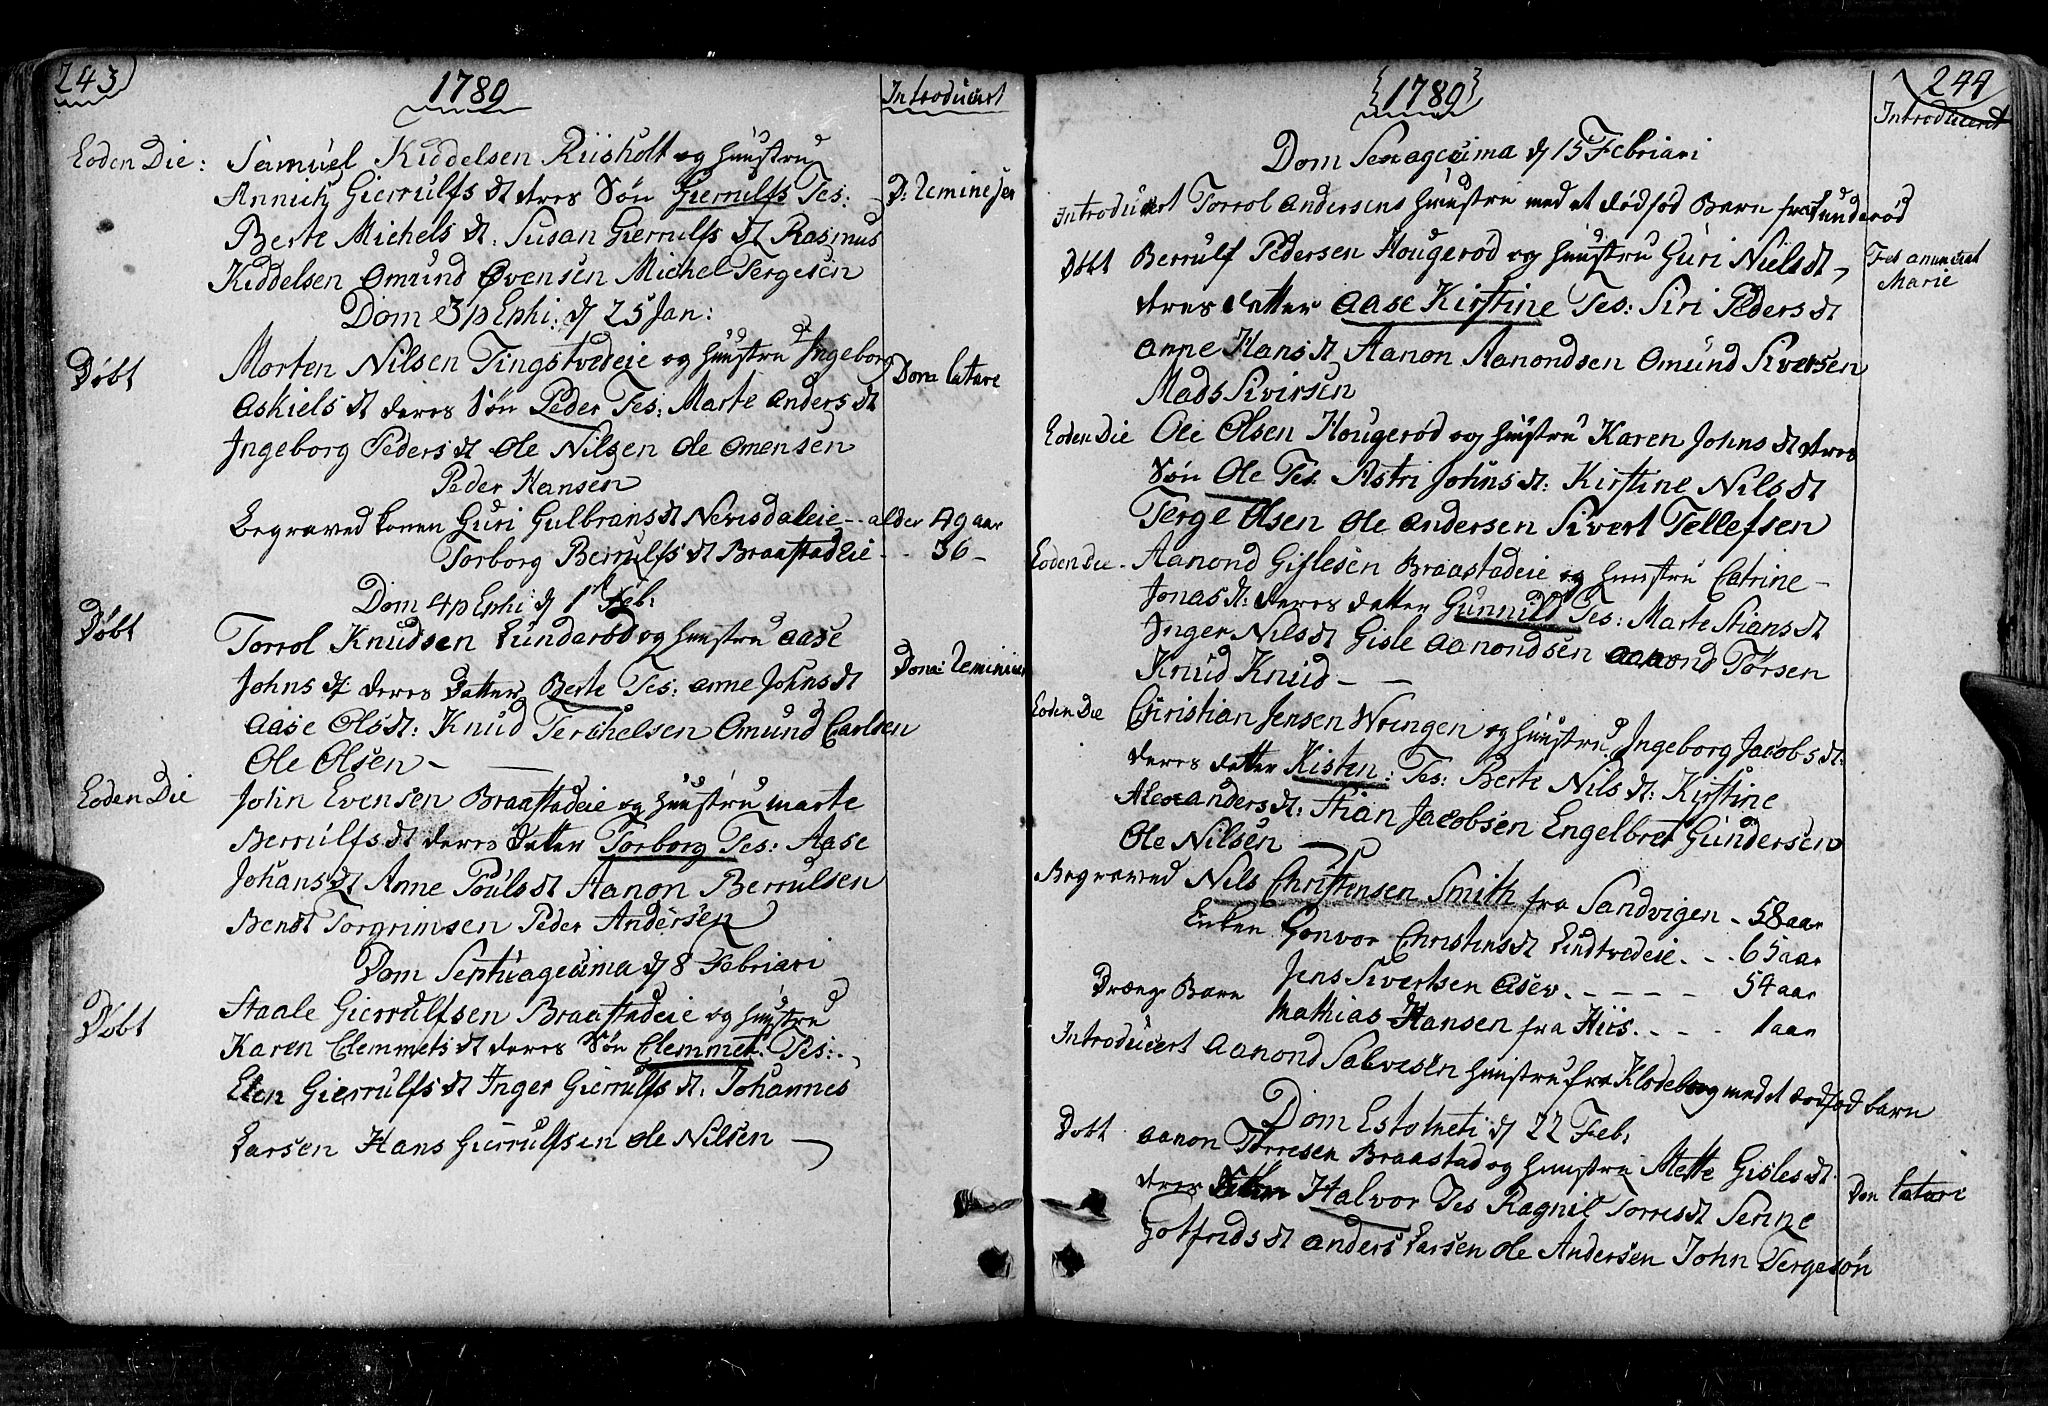 243
1789
Introducert
Eoden Die: Samuel Kiddelsen Riisholt og Huustru
Annich Gierrulfs dt deres Søn Gierrulfs Tes: D: Reminiser
Berte Michels dt: Susan Gierrulfs dt Rasmus
Kiddelsen Omund Øvensen Michel Tergesen
Dom 3 p Ephi: d 25 Jan:
Døbt Morten Nilsen Tingstvedeie og Huustru Ingeborg
Askiels dt deres Søn Peder Tes: Marte Anders dt Dom Letare
Ingeborg Peders dt Ole Nilsen Ole Omensen
Peder Hansen
Begraved konen Guri Gulbrans dt Nevisdaleie - alder 49 aar
Torborg Berrulfs dt Braastadeie - - 36 -
Dom 4 p Ephi: d 1 Feb:
Døbt Torrol Knudsen Lunderød og Huustru Aase
Johns dt deres Datter Berte Tes: Anne Johns dt Dom: Reminiser
Aase Ols dt: Knud Terchelsen Omund Carlsen
Ole Olsen -
Eoden Die John Evensen Braastadeie og Huustru Marte
Berrulfs dt deres Datter Torborg Tes: Aase
Johans dt Anne Pouls dt Aanon Berrulsen
Bendt Torgrimsen Peder Andersen
Dom Septuagesima d 8 Februari
Døbt Staale Gierrulfsen Braastadeie og Huustru
Karen Clemmets dt deres Søn Clemmet: Tes:
Elen Gierrulfs dt Inger Gierrulfs dt: Johannes
Larsen Hans Gierrulfsen Ole Nilsen
244
1789
Introducert
Dom Sexagesima d 15 Februari
Introducert Torrol Andersens Huustru med et dødfød Barn fra Lunderød
Døbt Berrulf Pedersen Hougerød og Huustru Guri Niels dt Fest anunciat
Marie
deres Datter Aase Kirstine Tes: Siri Peders dt
Anne Hans dt Aanon Aanondsen Omund Siversen
Mads Sivirsen
Eoden Die Ole Olsen Hougerød og Huustru Karen Johns dt deres
Søn Ole Tes: Astri Johns dt: Kirstine Nils dt
Terge Olsen Ole Andersen Sivert Tellefsen
Eoden Die - Aanond Gislesen Braastadeie og Huustru Catrine -
Jonas dt: deres Datter Gunnild Tes: Marte Stians dt
Inger Nils dt Gisle Aanondsen Aanond Tørsen
Knud Knud - -
Eoden Die Christian Jensen Wrengen og Huustru Ingeborg Jacobs dt:
deres Datter Kisten: Tes: Berte Nils dt: Kirstine
Alexanders dt: Stian Jacobsen Engelbret Gundersen
Ole Nilsen
Begraved Nils Christensen Smith fra Sandvigen - 58 aar
Enken Gonvor Christens dt Lindtvedeie - - - 65 aar
Jens Sivertsen Asev. - - - - 54 aar
Drænge Barn Mathias Hansen fra Hiis. - - - 1 aar
Introducert Aanond Salvesen Huustru fra Klodeborg med et dødfød barn
Dom Estometi d 22 Feb:
Døbt Aanon Torresen Braastad og Huustru Mette Gisles dt
deres Halvor Tes Ragnil Torres dt Serine Dom Letari
Gotfreds dt Anders Larsen Ole Andersen John Tergesøn